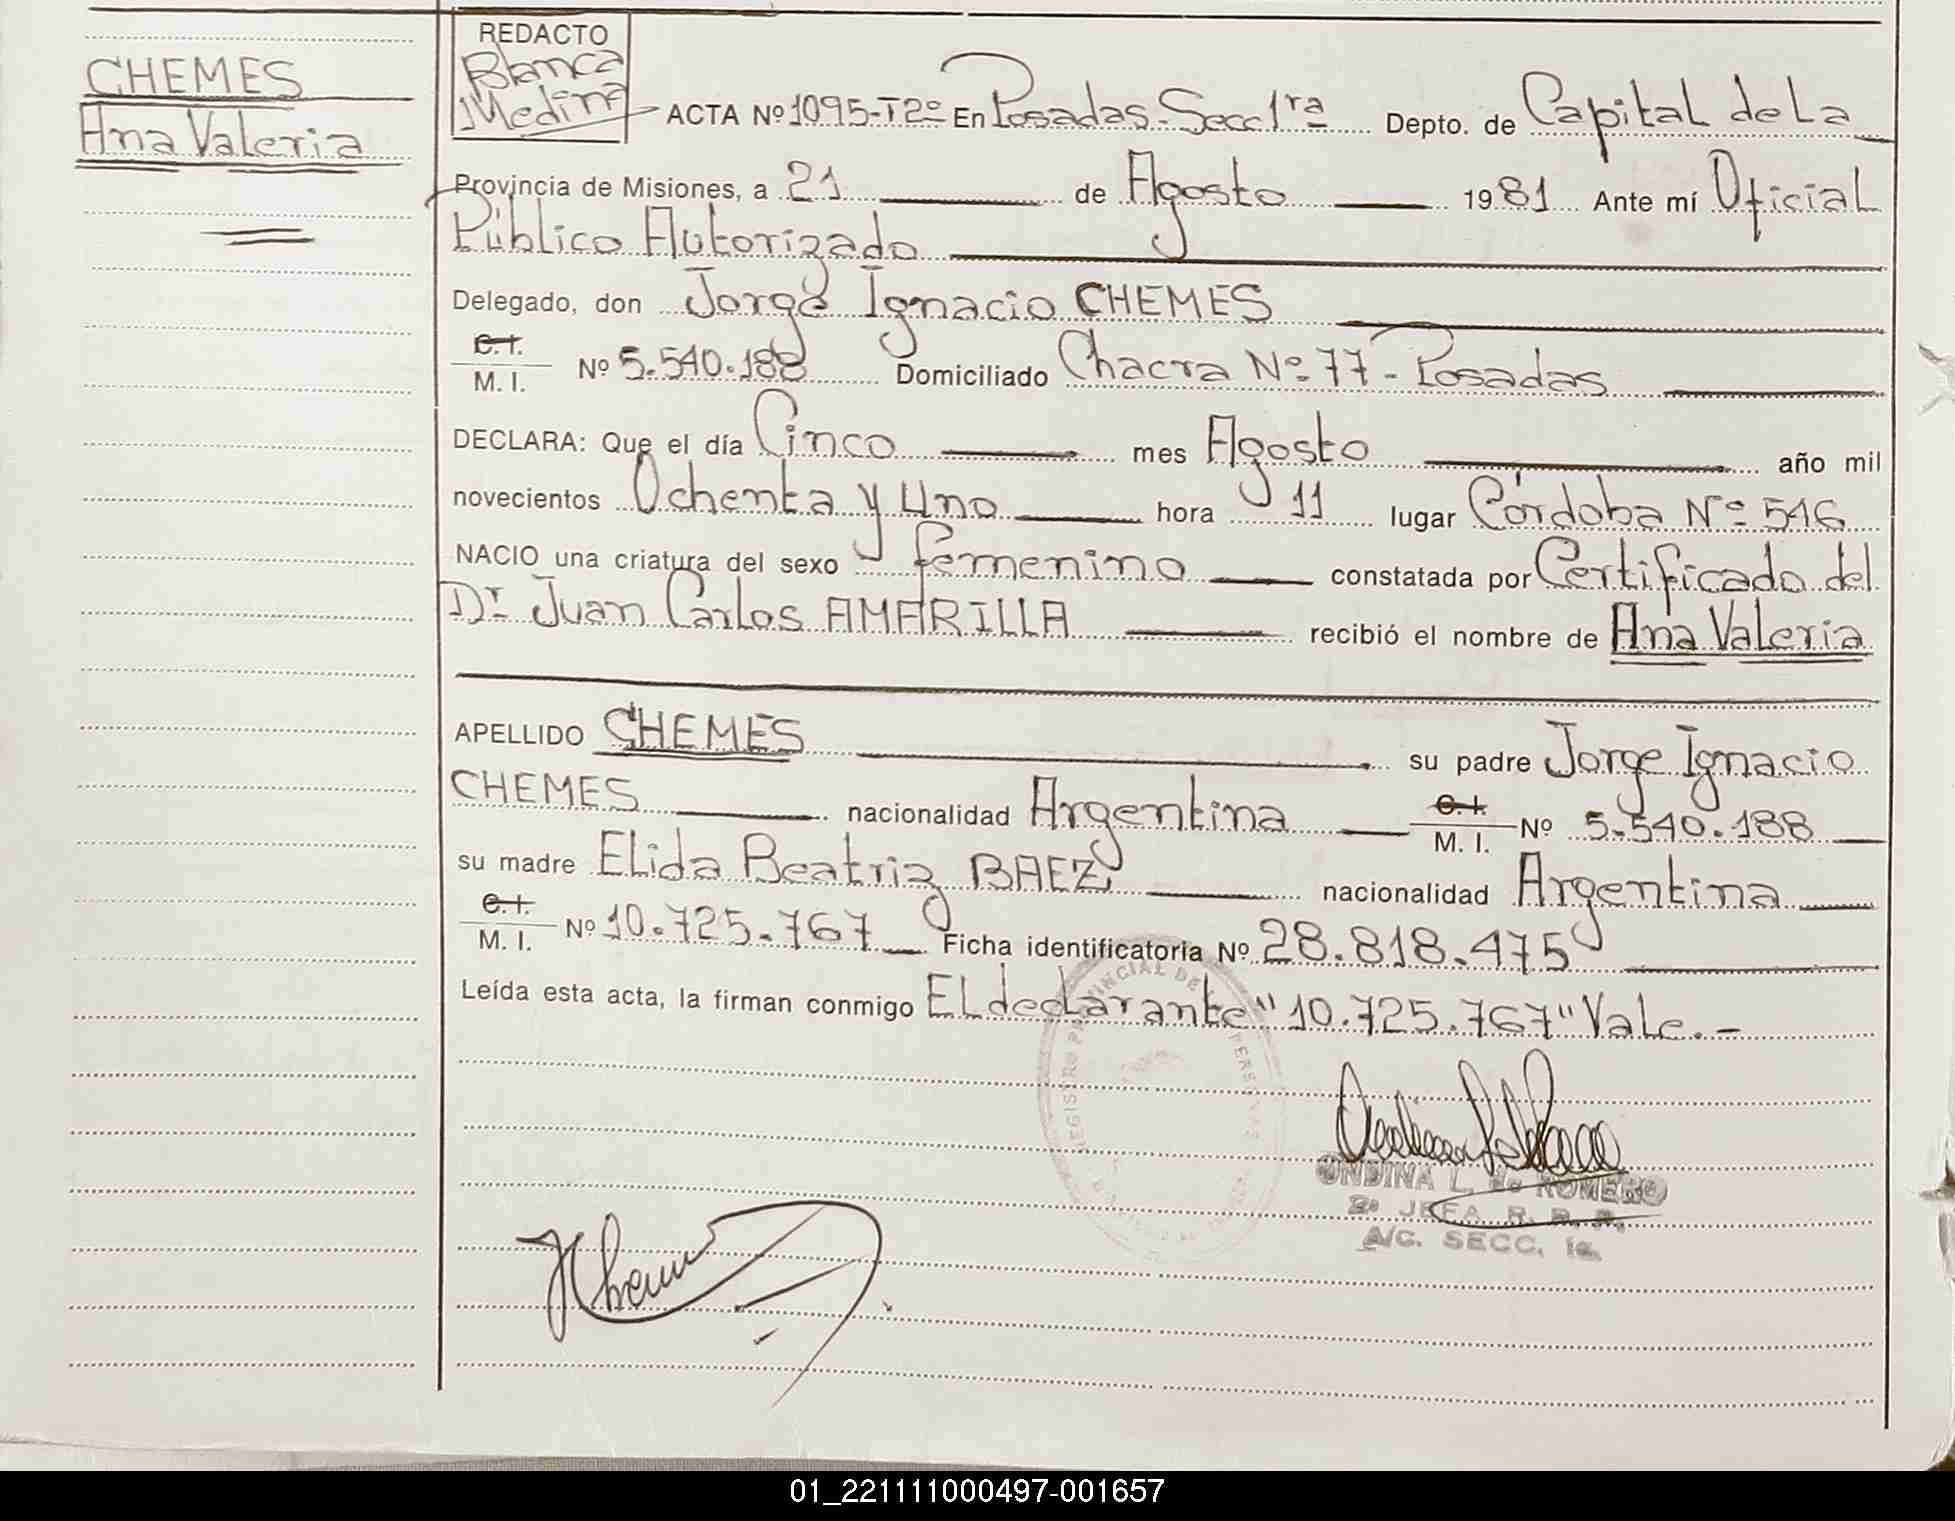 CHEMES
Ana Valeria
REDACTO
Blanca
Medina
ACTA Nº 1095-T2º En Posadas-Secc 1ra Depto. de Capital de La
Provincia de Misiones, a 21 de Agosto 1981 Ante mí Oficial
Público Autorizado
Delegado, don Jorge Ignacio CHEMES
C.I.
M. I. Nº 5.540.188 Domiciliado Chacra Nº 77 - Posadas
DECLARA: Que el día Cinco mes Agosto año mil
novecientos Ochenta y Uno hora 11 lugar Córdoba Nº 546
NACIO una criatura del sexo femenino constatada por Certificado del
Dr Juan Carlos AMARILLA recibió el nombre de Ana Valeria
APELLIDO CHEMES su padre Jorge Ignacio
CHEMES nacionalidad Argentina C.I. M. I. Nº 5.540.188
su madre Elida Beatriz BAEZ nacionalidad Argentina
C.I.
M. I. Nº 10.725.767 Ficha identificatoria Nº 28.818.475
Leída esta acta, la firman conmigo El declarante "10.725.767" Vale.-
REGISTRO PROVINCIAL DE PERSONAS
ONDINA L. de ROMERO
2º JEFA R. P. P.
A/C. SECC. 1a.
01_221111000497-001657